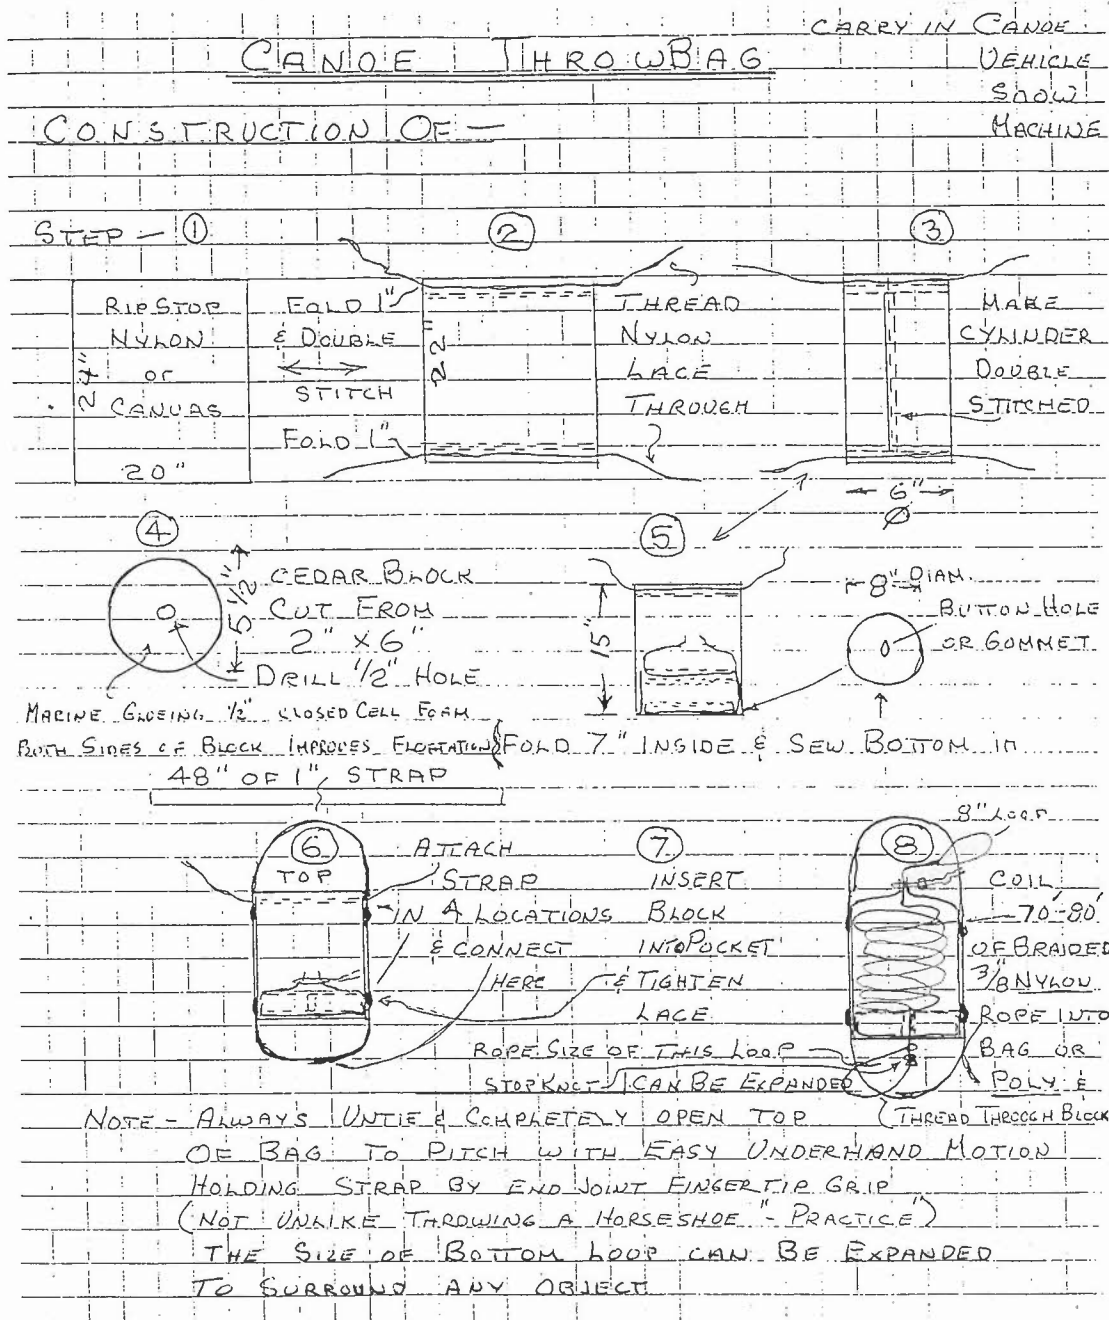 CARRY IN CANOE
VEHICLE
SNOW
MACHINE
CANOE THROWBAG
CONSTRUCTION OF —
STEP — ①
RIPSTOP
NYLON
or
CANVAS
24"
20"
②
FOLD 1"
& DOUBLE
STITCH
FOLD 1"
22"
THREAD
NYLON
LACE
THROUGH
③
MAKE
CYLINDER
DOUBLE
STITCHED
6"
Ø
④
5 1/2"
CEDAR BLOCK
CUT FROM
2" X 6"
DRILL 1/2" HOLE
MARINE GLUEING 1/2" CLOSED CELL FOAM
BOTH SIDES OF BLOCK IMPROVES FLOATATION
⑤
15"
8" DIAM.
BUTTON HOLE
OR GOMMET
FOLD 7" INSIDE & SEW BOTTOM in
48" OF 1" STRAP
⑥
TOP
ATTACH
STRAP
IN 4 LOCATIONS
& CONNECT
HERE
⑦
INSERT
BLOCK
INTO POCKET
& TIGHTEN
LACE
⑧
8" LOOP
COIL
70'-80'
OF BRAIDED
3/8 NYLON
ROPE INTO
BAG OR
POLY &
(THREAD THROUGH BLOCK
ROPE SIZE OF THIS LOOP
STOPKNOT CAN BE EXPANDED
NOTE - ALWAYS UNTIE & COMPLETELY OPEN TOP
OF BAG TO PITCH WITH EASY UNDERHAND MOTION
HOLDING STRAP BY END JOINT FINGERTIP GRIP
(NOT UNLIKE THROWING A HORSESHOE "- PRACTICE")
THE SIZE OF BOTTOM LOOP CAN BE EXPANDED
TO SURROUND ANY OBJECT